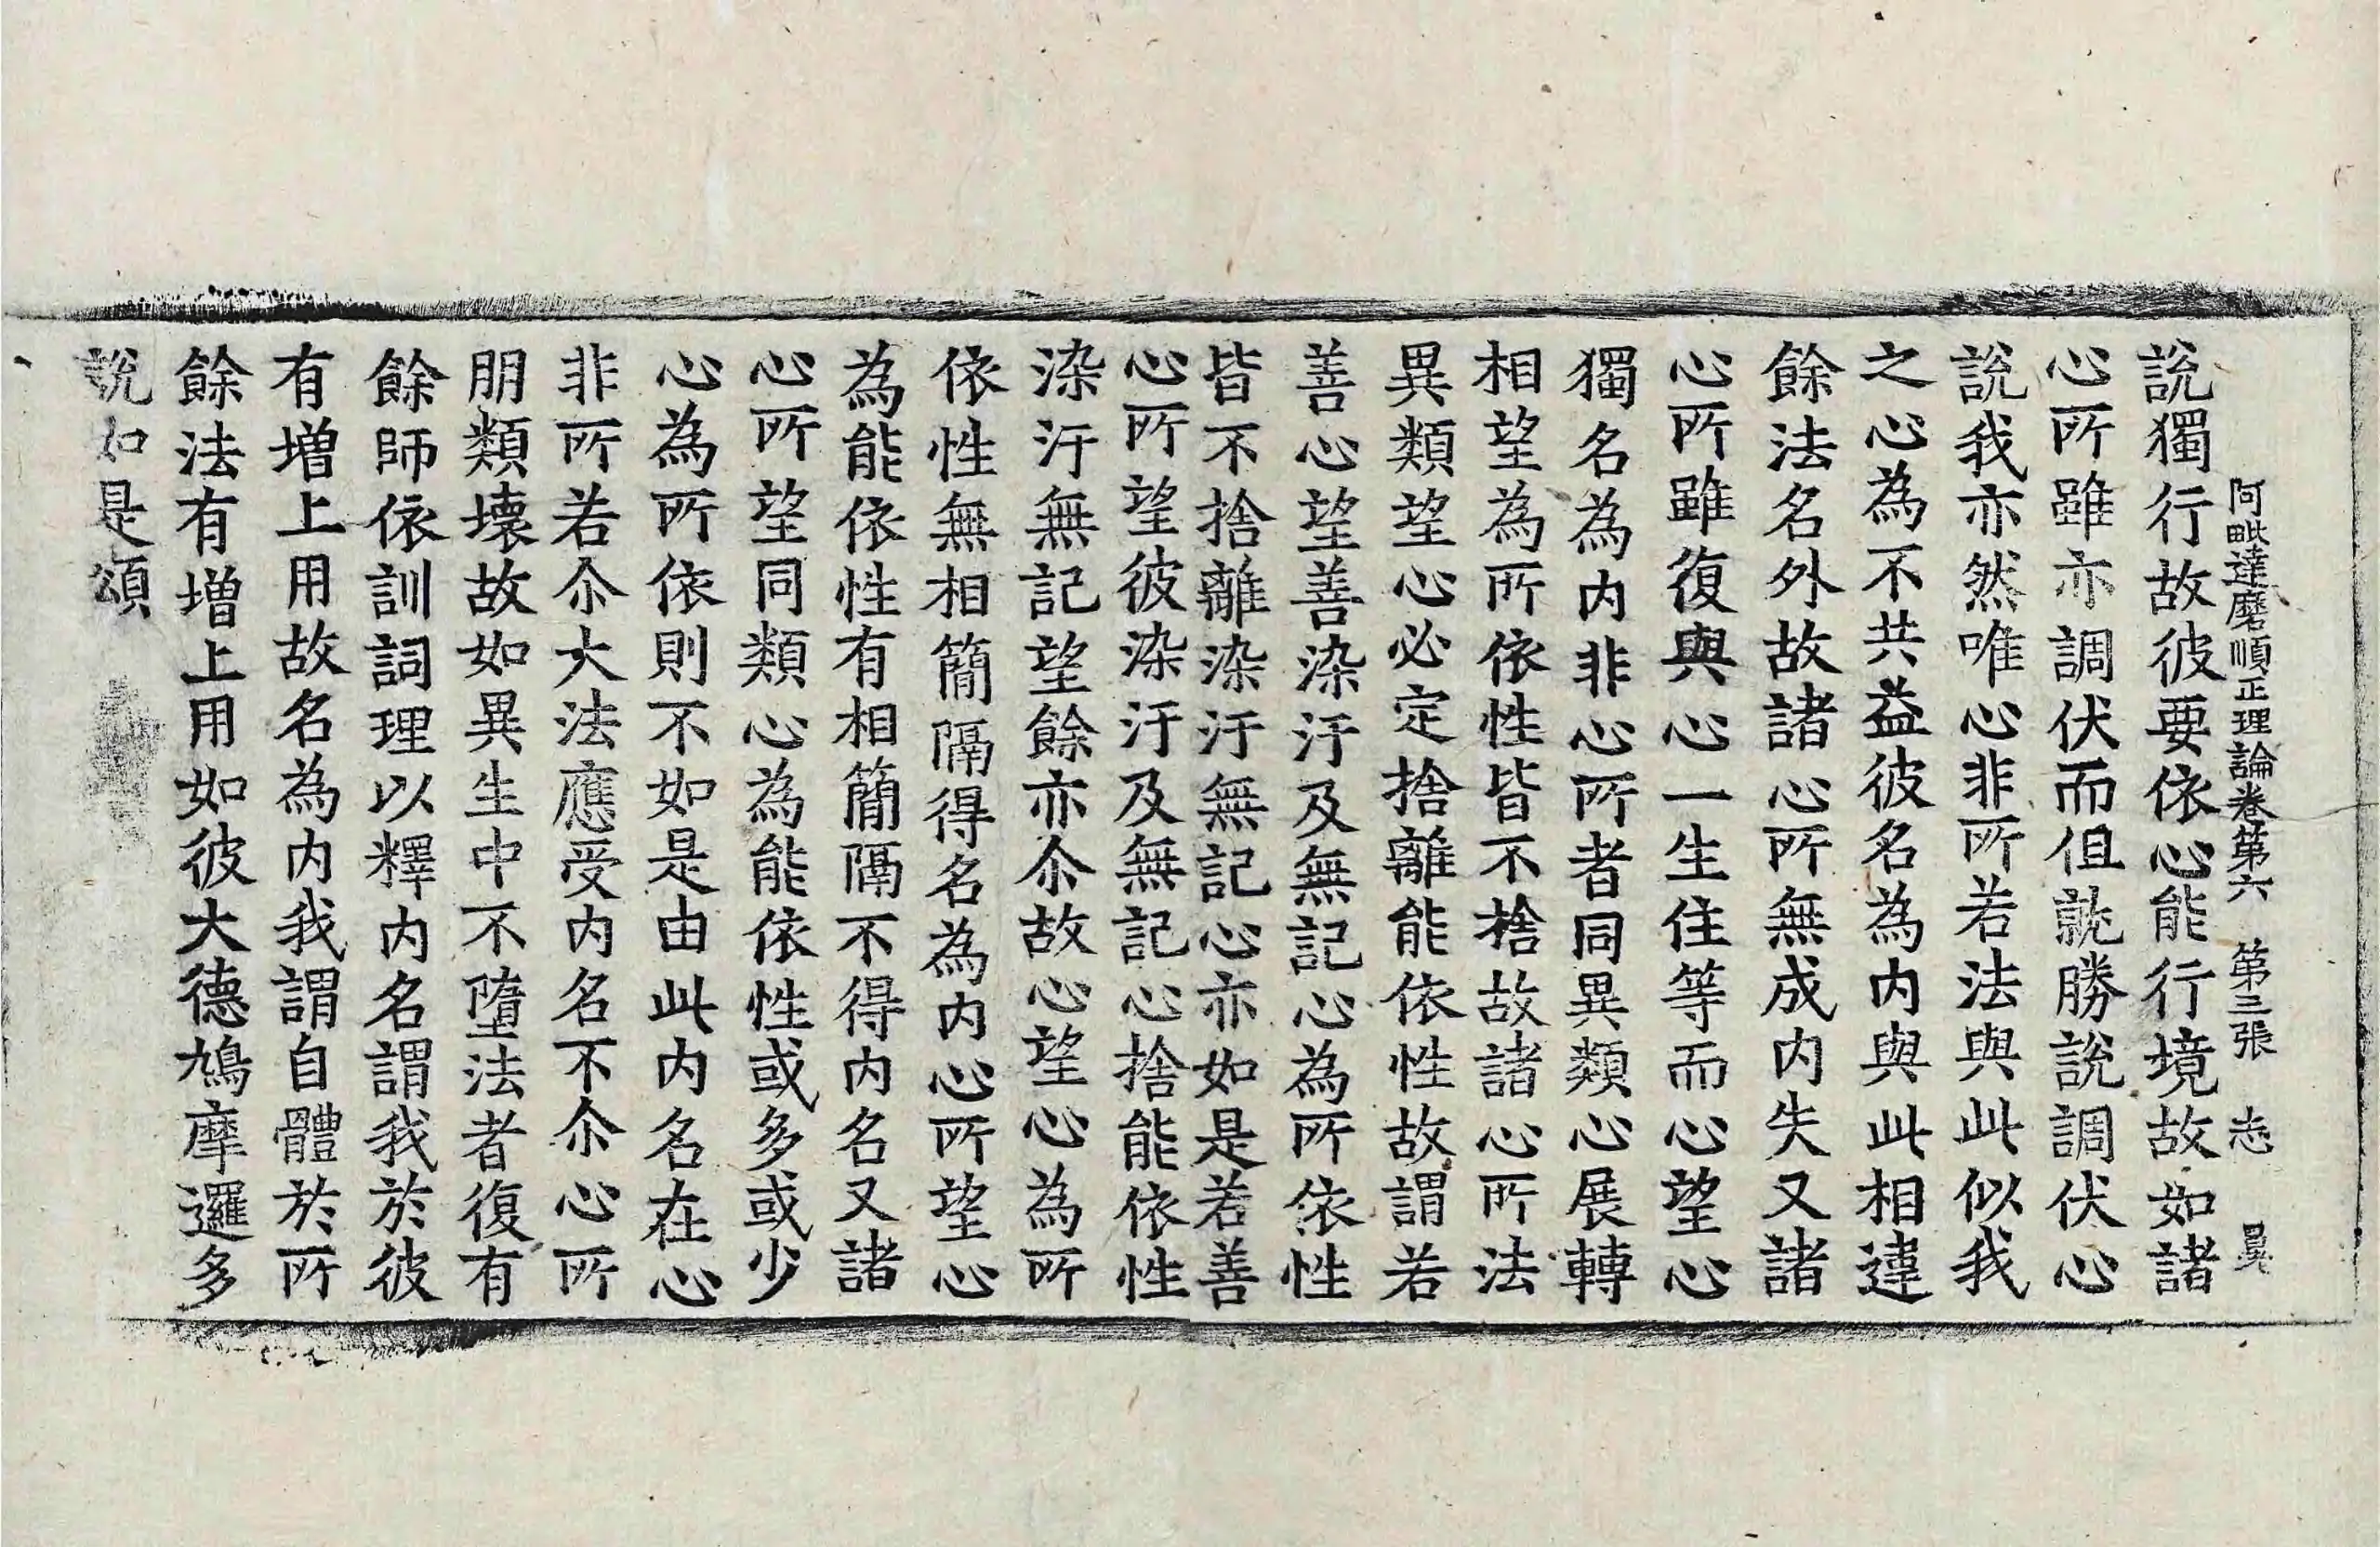 阿毗達磨順正理論卷第六 第三張 志
說獨行故彼要依心能行境故如諸
心所雖亦調伏而但就勝說調伏心
說我亦然唯心非所若法與此似我
之心為不共益彼名為內與此相違
餘法名外故諸心所無成內失又諸
心所雖復與心一生住等而心望心
獨名為內非心所者同異類心展轉
相望為所依性皆不捨故諸心所法
異類望心必定捨離能依性故謂若
善心望善染汙及無記心為所依性
皆不捨離染汙無記心亦如是若善
心所望彼染汙及無記心捨能依性
染汙無記望餘亦尒故心望心為所
依性無相簡隔得名為內心所望心
為能依性有相簡隔不得內名又諸
心所望同類心為能依性或多或少
心為所依則不如是由此內名在心
非所若尒大法應受內名不尒心所
朋類壞故如異生中不墮法者復有
餘師依訓詞理以釋內名謂我於彼
有增上用故名為內我謂自體於所
餘法有增上用如彼大德鳩摩邏多
說如是頌